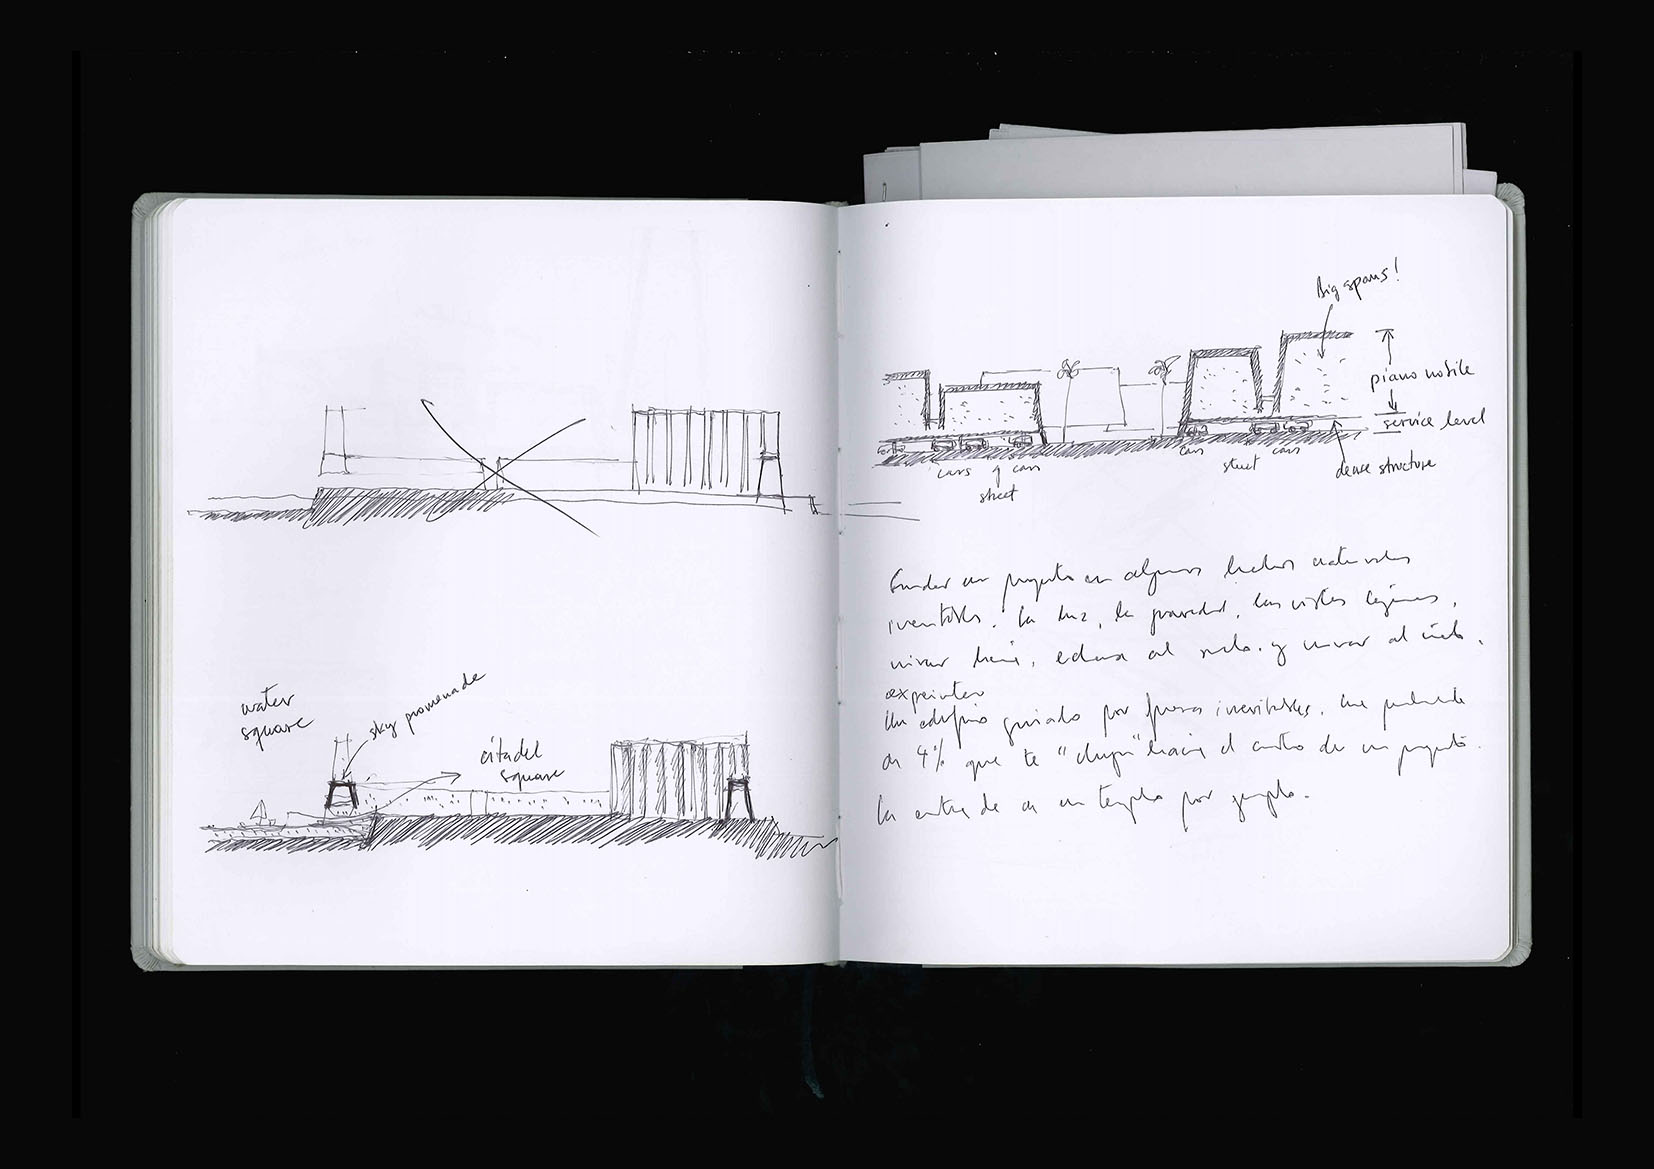 water
square
sky promenade
citadel
square
Big spans!
piano nobile
service level
dense structure
cars y cars
street
cars street cars
un proyecto en algunos hechos naturales
inevitables. La luz, la gravedad, las vistas lejanas,
mirar hacia, al suelo. y mirar al cielo.
Un edificio guiado por fuerzas inevitables. Una pendiente
de 4% que te "chupa" hacia el centro de un proyecto.
La entrada de en un templo por ejemplo.